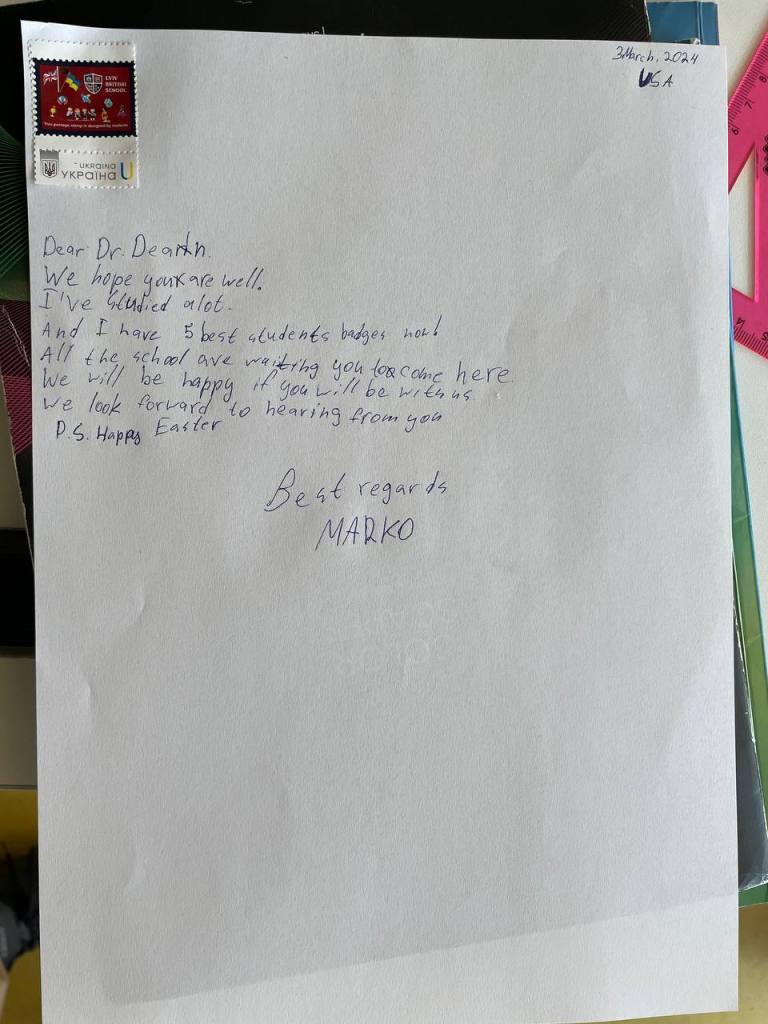 3 March, 2024
USA
LVIV
BRITISH
SCHOOL
This postage stamp is designed by students
UKRAINA
УКРАЇНА
Dear Dr.
We hope you are well.
I've studied alot.
And I have 5 best students badges now!
All the school are waiting you to come here.
We will be happy if you will be with us
We look forward to hearing from you
P.S. Happy Easter
Best regards
MARKO